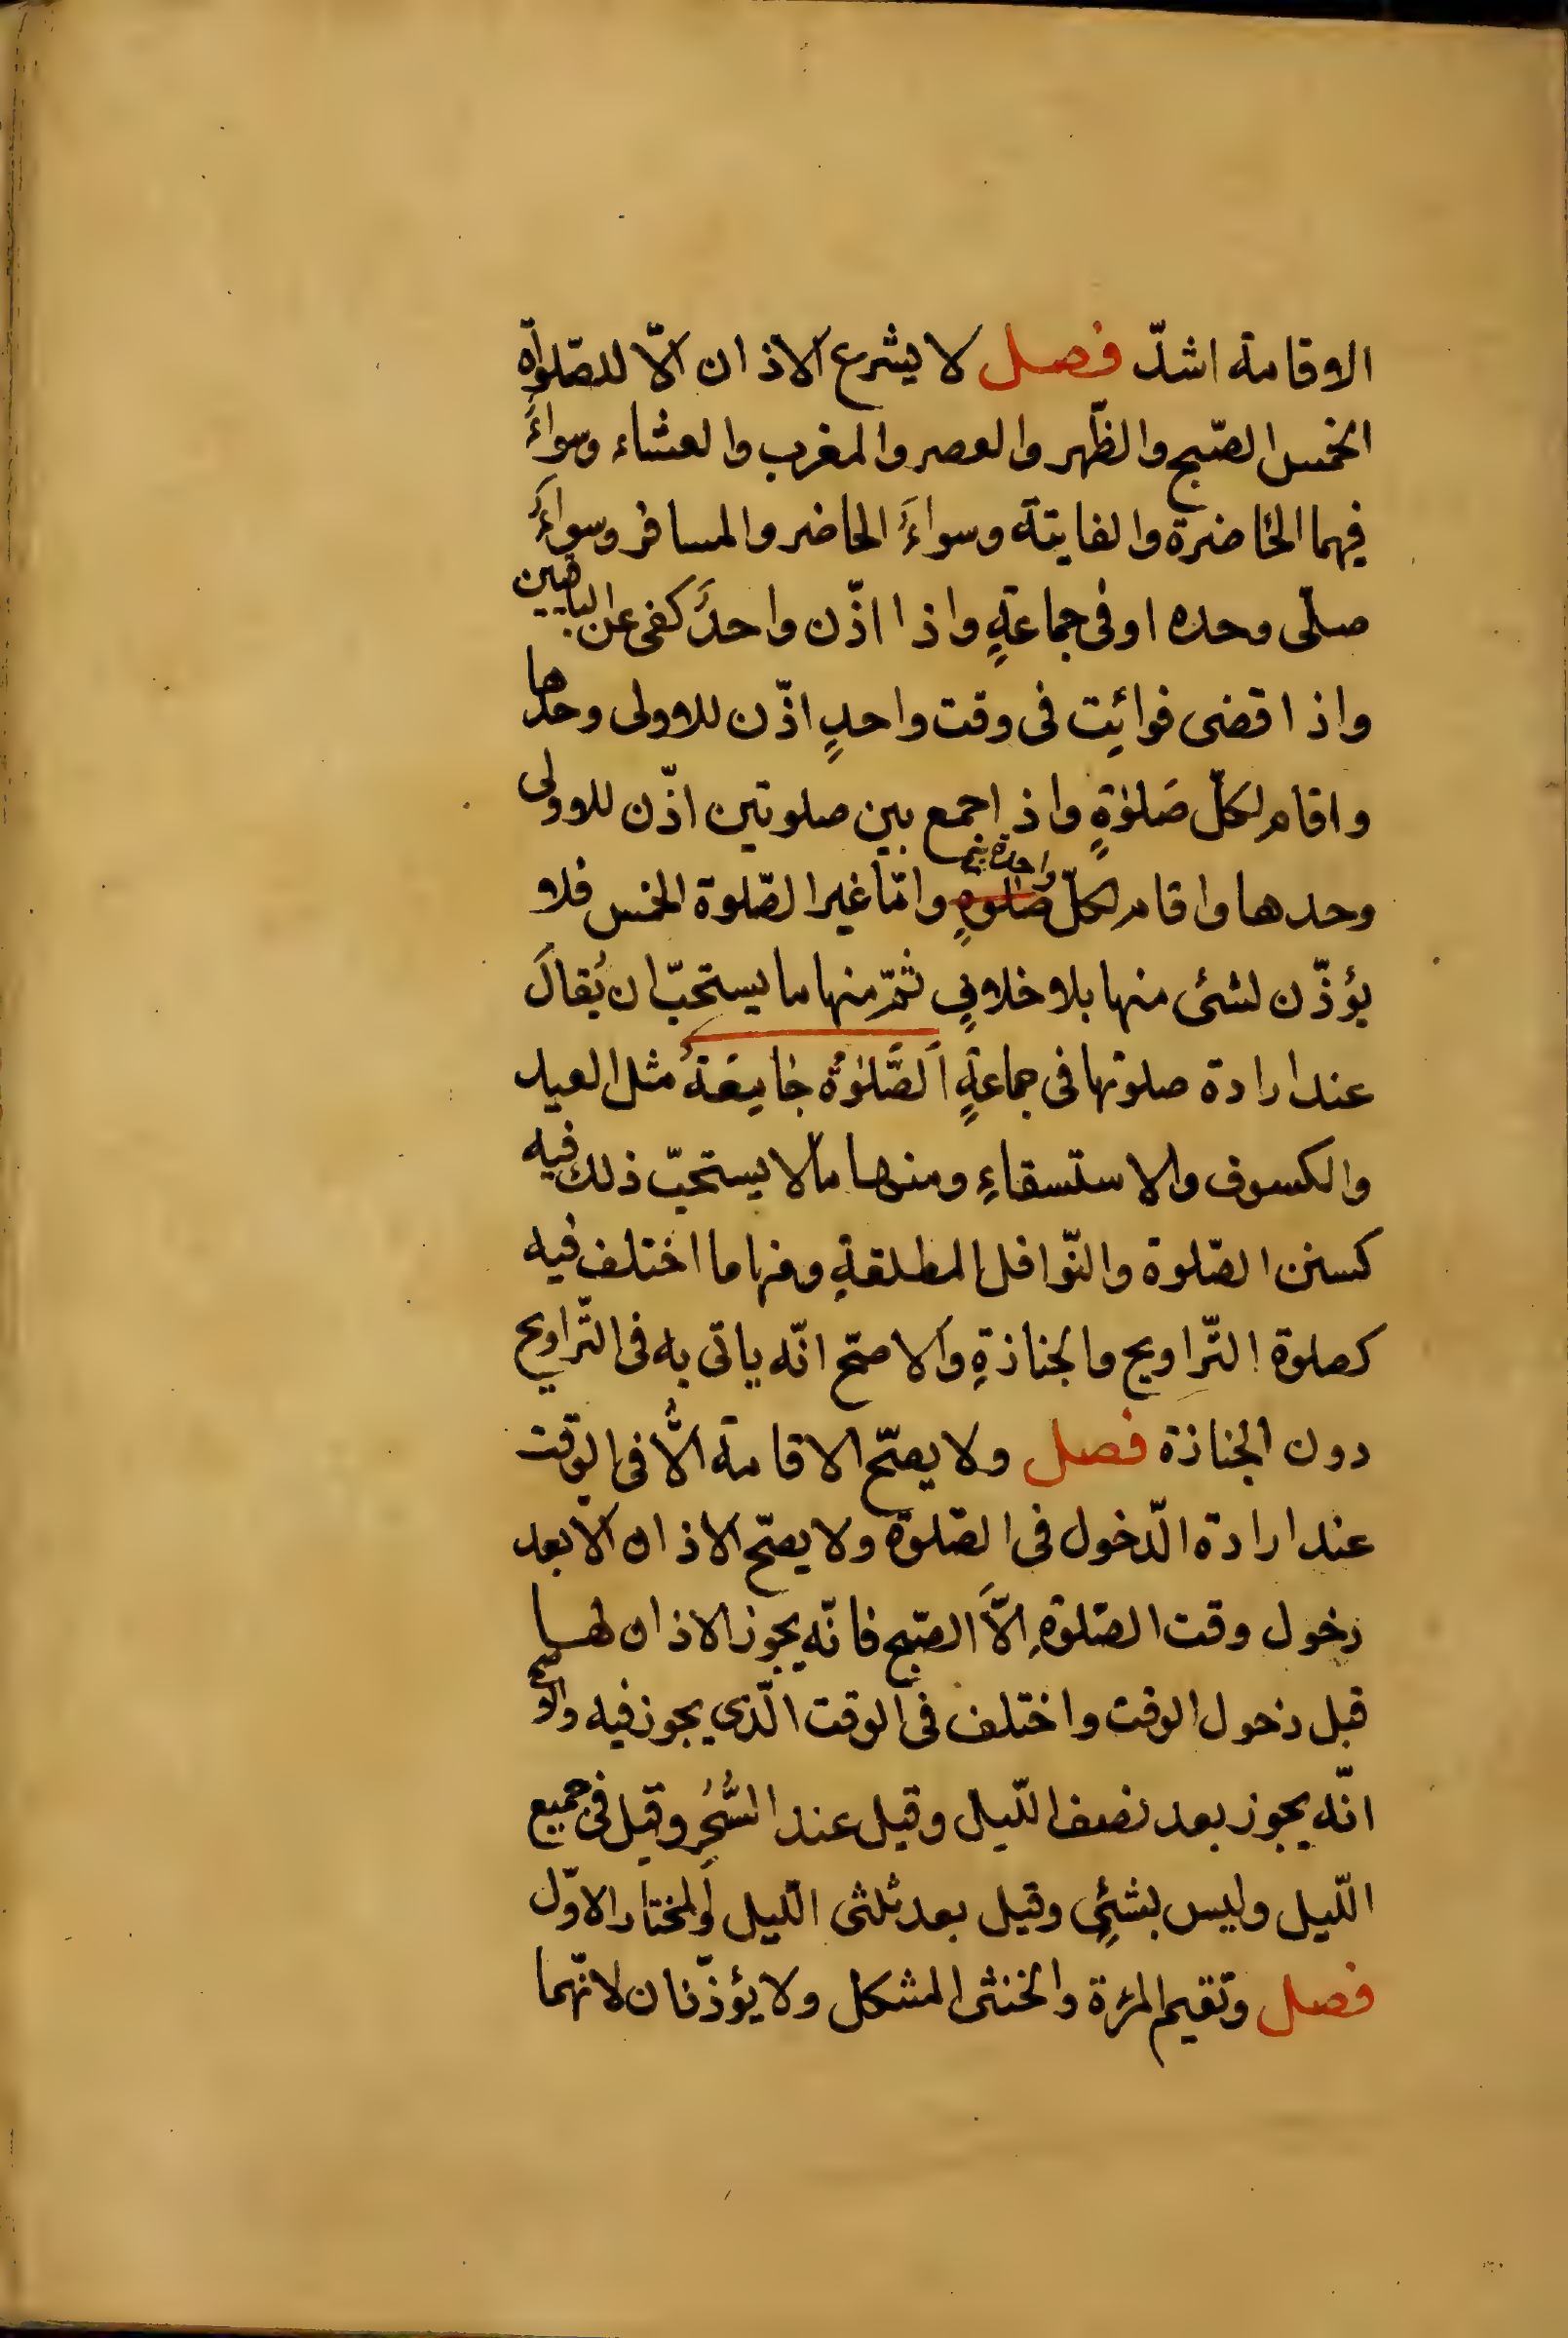 الاقامة اشدّ فصل لا يشرع الاذان الّا للصّلوٰة
الخمس الصّبح والظّهر والعصر والمغرب والعشاء وسواءً
فيهما الحاضرة والفايتة وسواءً الحاضر والمسافر وسواءً
صلّى وحده او فى جماعةٍ واذا اذّن واحدٌ كفى عن الباقين
واذا قضى فوائت فى وقت واحدٍ اذّن للاولى وحدها
واقام لكلّ صَلوٰةٍ واذا جمع بين صلوتين اذّن للاولى
واحدة
وحدها واقام لكلّ صَلوٰةٍ وامّا غير الصّلوة الخمس فلا
يؤذّن لشئ منها بلا خلافٍ ثمّ منها ما يستحبّ ان يُقالَ
عند ارادة صلوتها فى جماعةٍ اَلصَّلوٰةُ جَامِعَةٌ مثل العيد
والكسوف والاستسقاءِ ومنها ما لا يستحبّ ذلك فيه
كسنن الصّلوة والنّوافل المطلقةِ ومنها ما اختلف فيه
كصلوة التّراويح والجنازةِ والاصحّ انّه ياتى به فى التّراويح
دون الجنازة فصل ولا يصحّ الاقامة الّا فى الوقت
عند ارادة الدّخول فى الصّلوة ولا يصحّ الاذان الا بعد
دخول وقت الصّلوةِ الّا الصّبح فانّه يجوز الاذان لها
قبل دخول الوقت واختلف فى الوقت الّذى يجوز فيه والاصحّ
انّه يجوز بعد نصف اللّيل وقيل عند السَّحَرِ وقيل فى جميع
اللّيل وليس بشئٍ وقيل بعد ثلثى اللّيل والمختار الاوّل
فصل وتقيم المرٔة والخنثى المشكل ولا يؤذّنان لانّهما